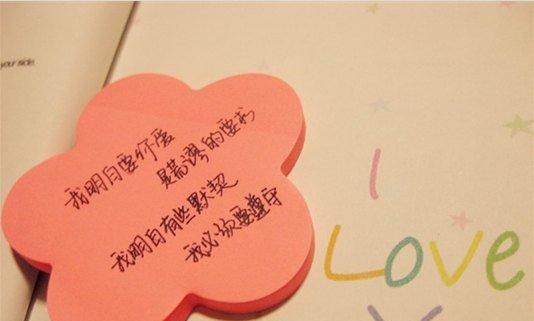 your side.
我明白要你爱
是荒谬的要求
我明白有些默契
我必须要遵守
I
Love
Y